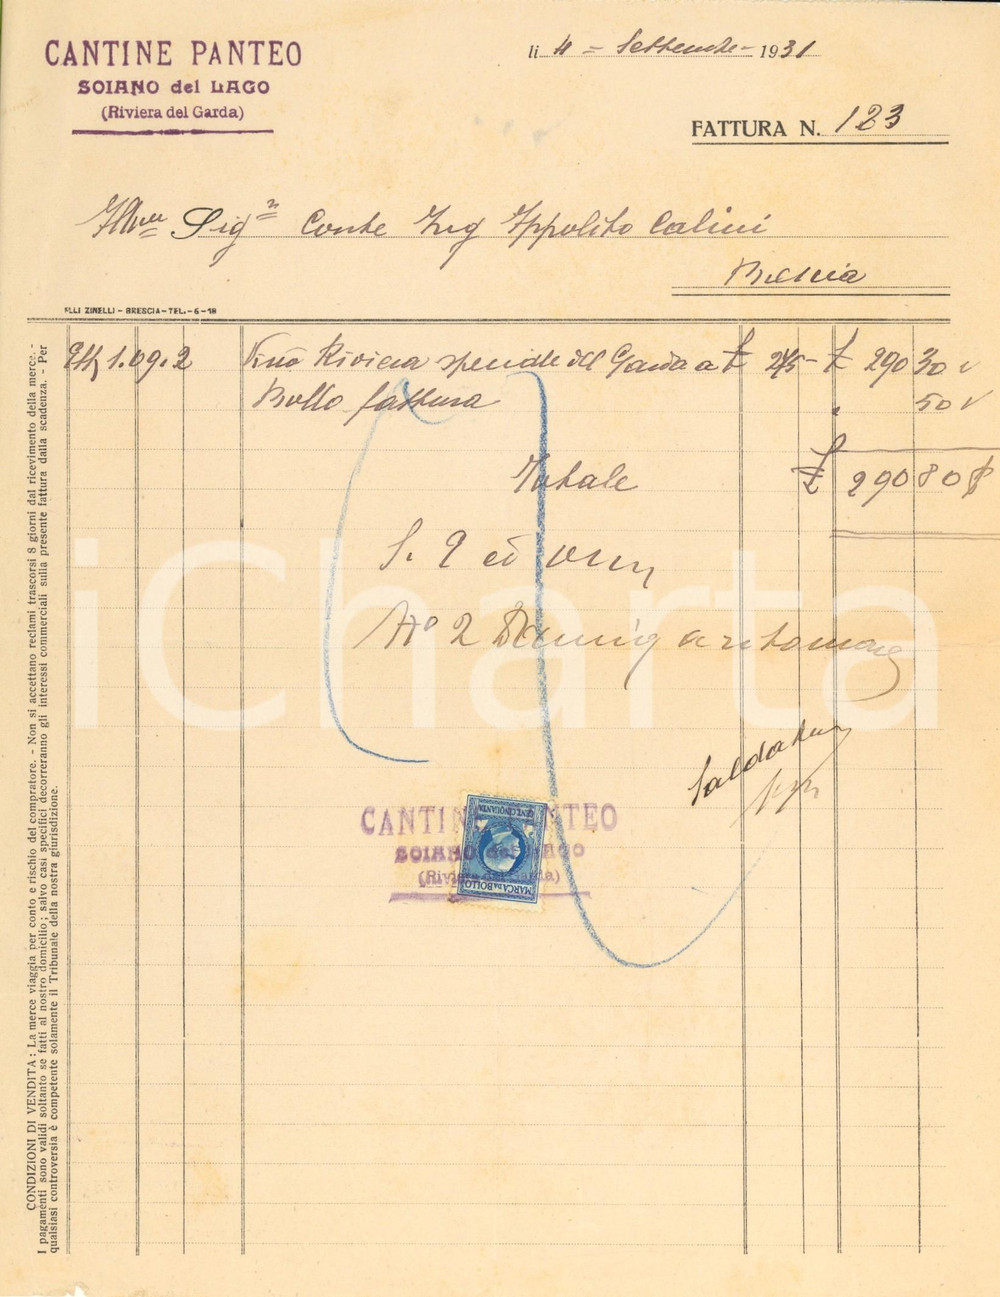 CANTINE PANTEO
SOIANO del LAGO
(Riviera del Garda)
li 4 = Settembre - 1931
FATTURA N. 123
Sig Conte Ing Ippolito Calini
Brescia
F.LLI ZINELLI - BRESCIA - TEL. - 6-18
1.09.2 Vino Riviera speciale del Garda a £ 245 - £ 290 30
Bollo fattura " 50
Totale £ 290 80
N° 2
Saldata
CANTINE PANTEO
SOIANO del LAGO
(Riviera del Garda)
CENT. CINQUANTA
MARCA DA BOLLO
CONDIZIONI DI VENDITA: La merce viaggia per conto e rischio del compratore. - Non si accettano reclami trascorsi 8 giorni dal ricevimento della merce. -
I pagamenti sono validi soltanto se fatti al nostro domicilio; salvo casi specifici decorreranno gli interessi commerciali sulla presente fattura dalla scadenza. - Per
qualsiasi controversia è competente solamente il Tribunale della nostra giurisdizione.
iCharta